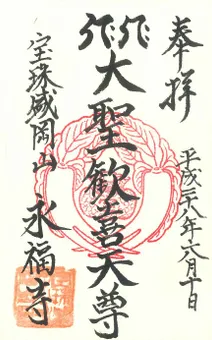 奉拝
平成二十八年六月十日
大聖歓喜天尊
宝珠威岡山
永福寺